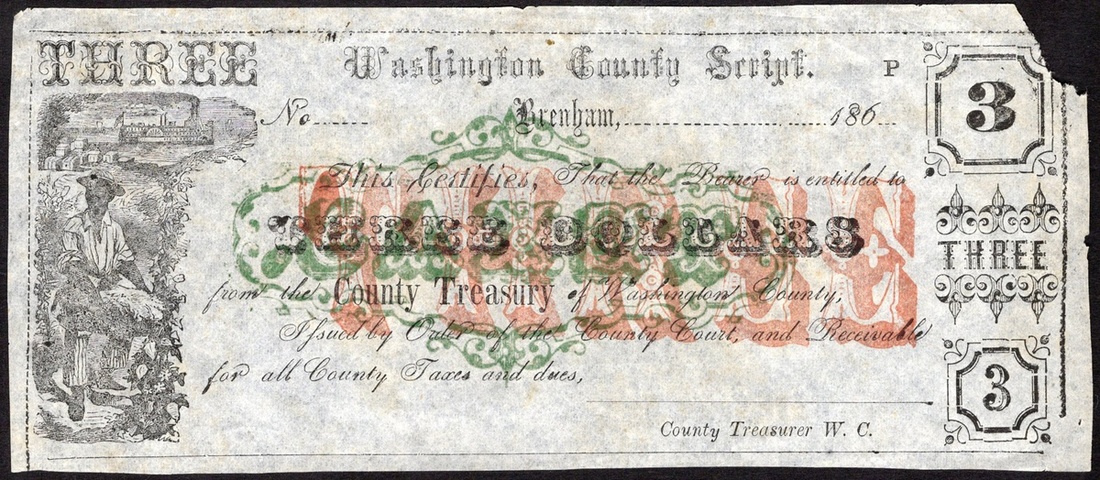 THREE
Washington County Script.
P
3
No
Brenham, 186
This Certifies, That the Bearer is entitled to
THREE DOLLARS
THREE
from the County Treasury of Washington County;
THREE
Issued by Order of the County Court, and Receivable
for all County Taxes and dues,
3
County Treasurer W. C.